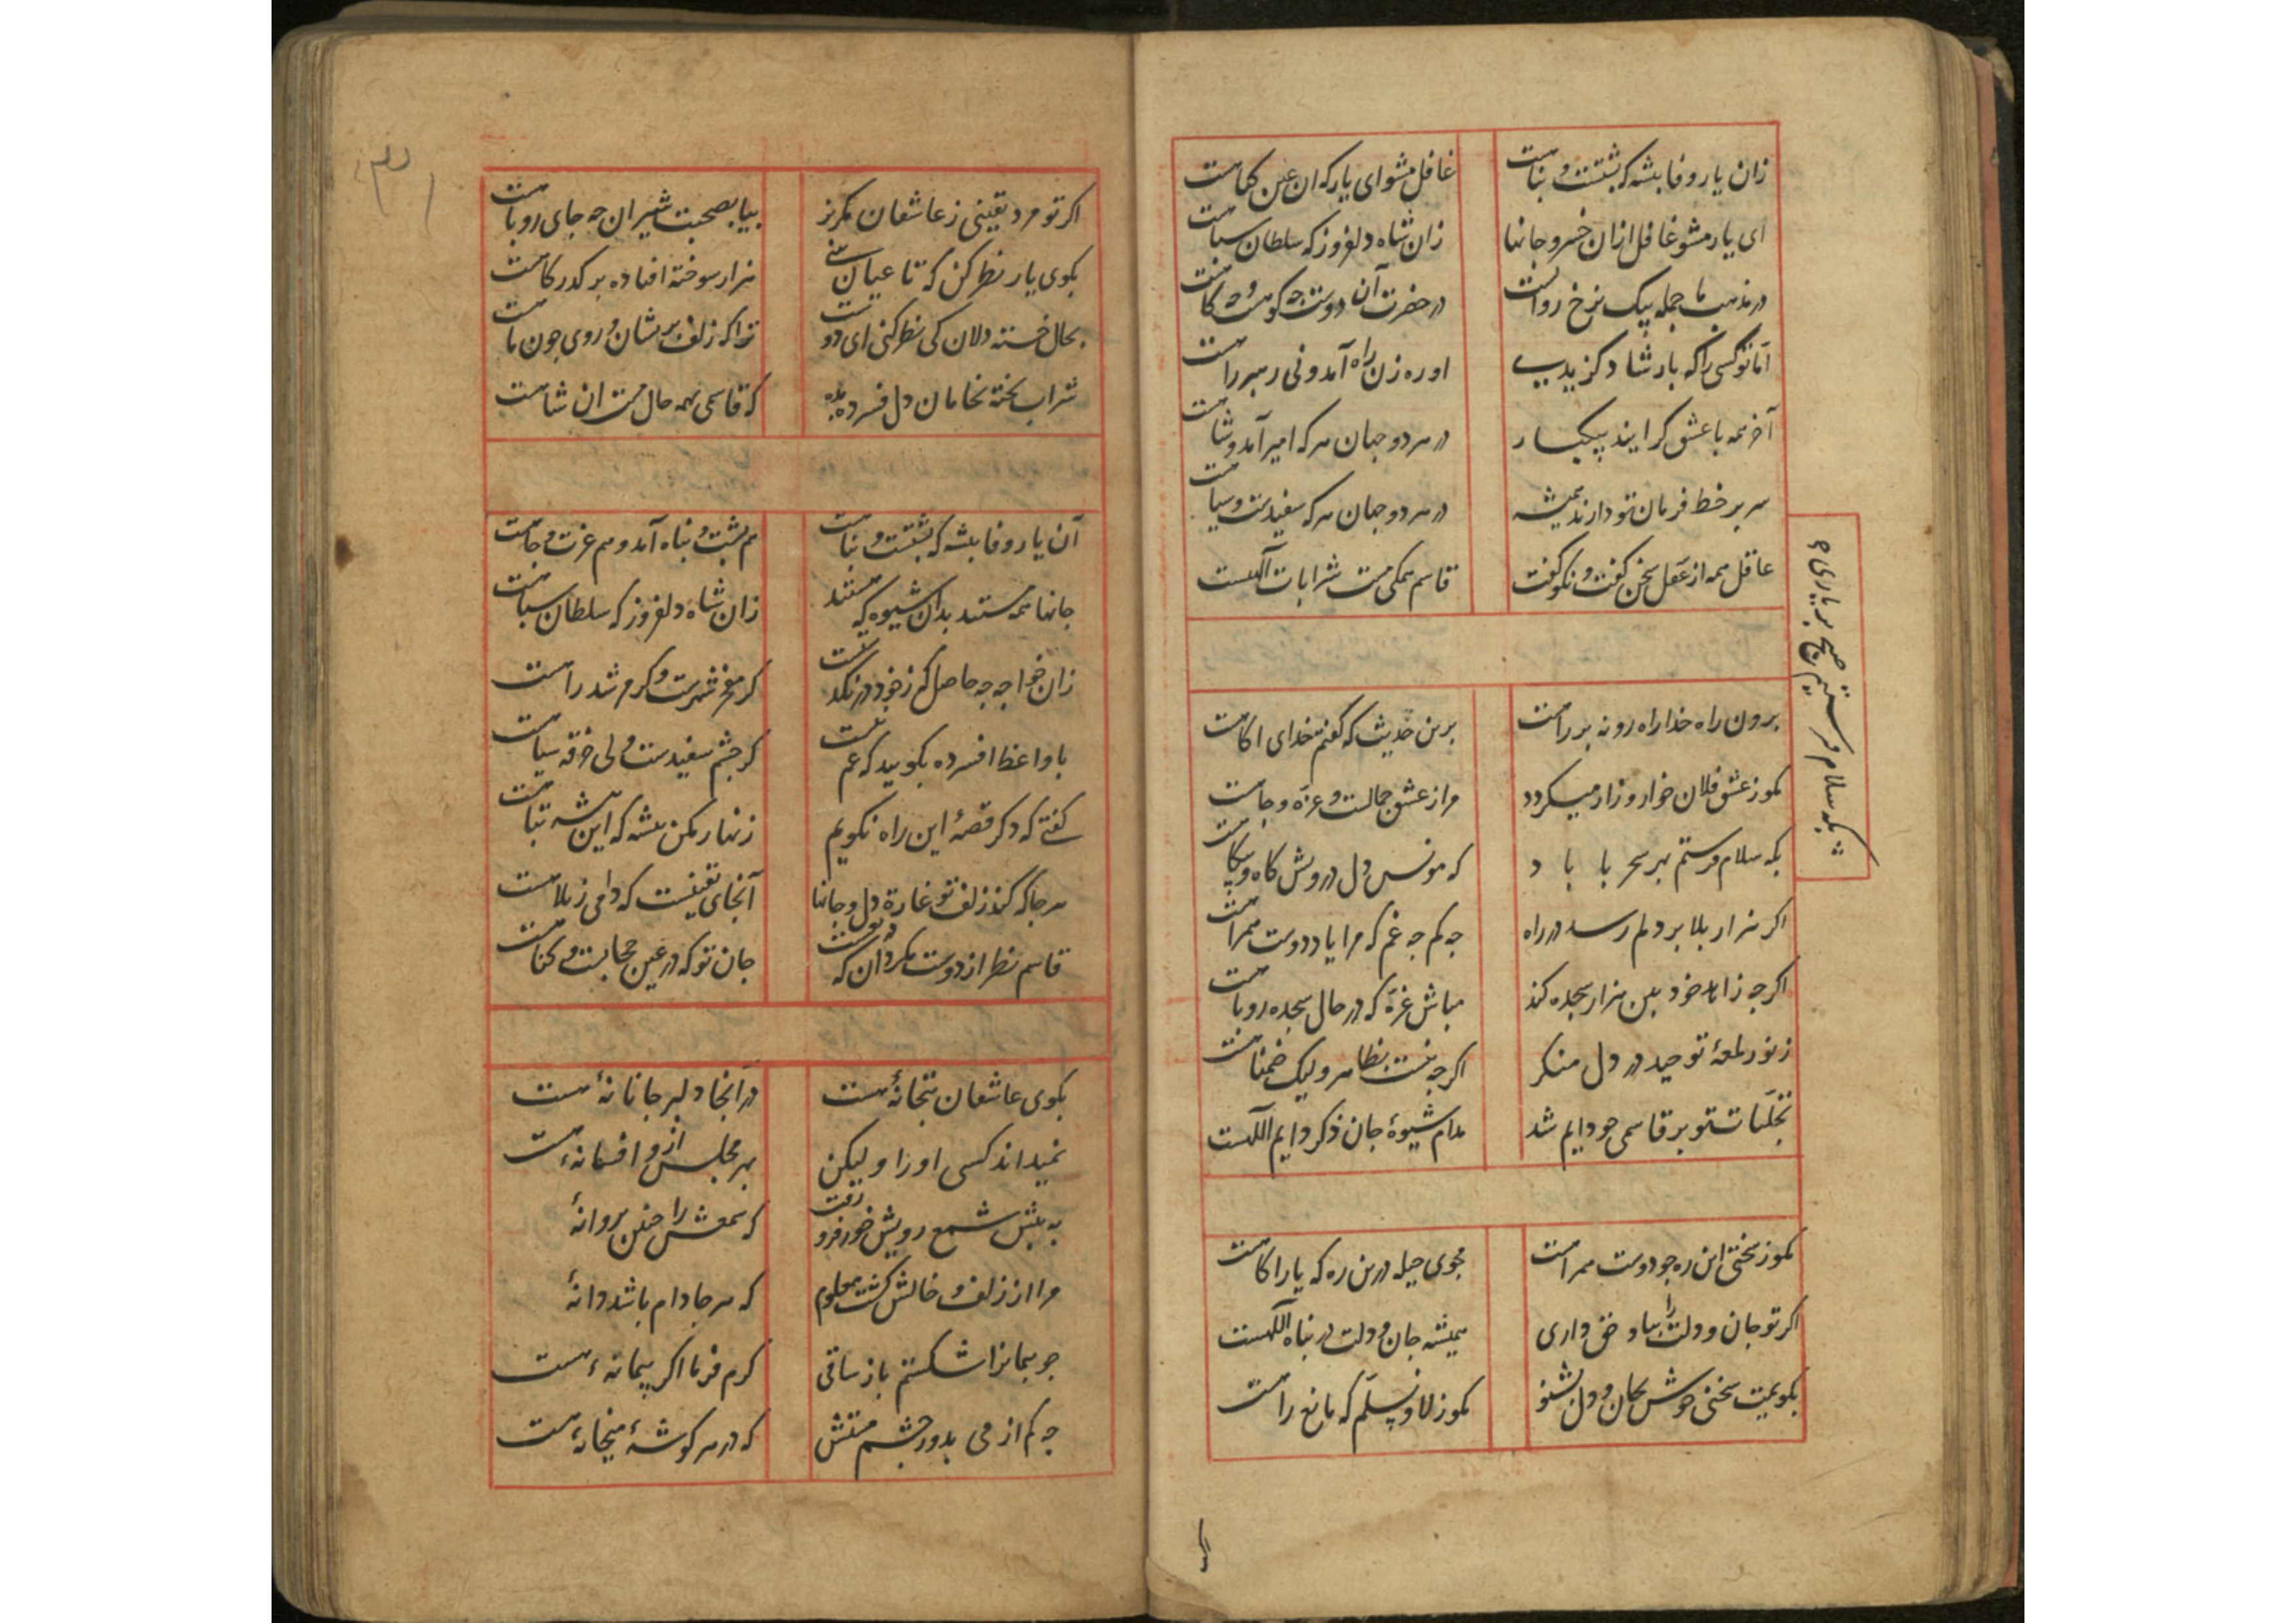 زان یار وفا بیشه که بشتست و بناهست
غافل مشو ای یار که ان عین کماهست
ای یار مشو غافل ازان خسرو جانها
زان شاه دلفروز که سلطان سباهست
در مذهب ما جمله بیک نرخ روانست
در حضرت آن دوست چه کوهست و چه کاهست
اما تو کسی را که بارشاد کزیدی
او ره زن راه آمد ونی رهبر راهست
آخر همه با عشق کرایند بیکبار
در هر دو جهان هر که امیر آمد و شاهست
سر بر خط فرمان تو دارند همیشه
در هر دو جهان هر که سفیدست و سیاهست
عاقل همه از عقل سخن کفت و نکو کفت
قاسم همکی مست شرابات الهست
برون راه خدا راه رو نه بر راهست
برین حدیث که کفتم خدای اکاهست
مکو ز عشق فلان خوار و زار میکردد
مرا ز عشق جمالست و عزه و جاهست
بکه سلام فرستم بهر سحر با باد
که مونس دل درویش کاه و بیکاهست
اگر هزار بلا بر دلم رسد در راه
چه کم چه غم که مرا یاد دوست همراهست
اکرچه زاهد خود بین هزار سجده کند
مباش غره که در حال سجده روباهست
ز نور لمعهٔ توحید در دل منکر
اکرچه نیست بظاهر ولیک ضمناهست
تجلیات تو بر قاسمی چو دایم شد
مدام شیوهٔ جان ذکر دایم اللهست
بکه سلام فرستیم صبح بر یاری
مکو ز سختی این ره چو دوست همراهست
مجوی حیله درین ره که یار اکاهست
اکر تو جان و دلت را بیاد حق داری
همیشه جان و دلت در بناه اللهست
بکویمت سخنی خوش بجان و دل بشنو
مکو ز لا و نسلم که مانع راهست
اکر تو مرد یقینی ز عاشقان مکریز
بیا بصحبت شیران چه جای روباهست
بکوی یار نظر کن که تا عیان بینی
هزار سوخته افتاده بر کذرکاهست
بحال خسته دلان کی نظر کنی ای دوست
ترا که زلف بریشان و روی چون ماهست
شراب بخته بخامان دل فسرده مده
که قاسمی همه حال مست ان شاهست
آن یار وفا بیشه که بشتست و بناهست
هم بشت و بناه آمد و هم عزت و جاهست
جانها همه مستند بدان شیوه که هستند
زان شاه دلفروز که سلطان سباهست
زان خواجه چه حاصل که ز خود در نکذشت
کر مفخر شهرست و کر مرشد راهست
با واعظ افسرده بکویید که عمیست
کر جشم سفیدست ولی خرقه سیاهست
کفتی که دکر قصهٔ این راه نکویم
زنهار مکن بیشه که این بیشه تباهست
هر جا که کند زلف تو غارة دل و جانها
آنجای یقینست که دامی ز بلاهست
قاسم نظر از دوست مکردان که دویست
جان تو که در عین حجابست و کناهست
بکوی عاشقان بتخانهٔ هست
در آنجا دلبر جانانهٔ هست
نمیداند کسی او را و لیکن
بهر مجلس از و افسانهٔ هست
به بیش شمع رویش خور فرو رفت
که شمعش را جنین بروانهٔ
مرا از زلف و خالش کشت معلوم
که هر جا دام باشد دانهٔ
جو بیمانرا شکستم باز ساقی
کرم فرما اکر بیمانهٔ هست
چه کم از می بدور جشم مستش
که در هر کوشهٔ میخانهٔ هست